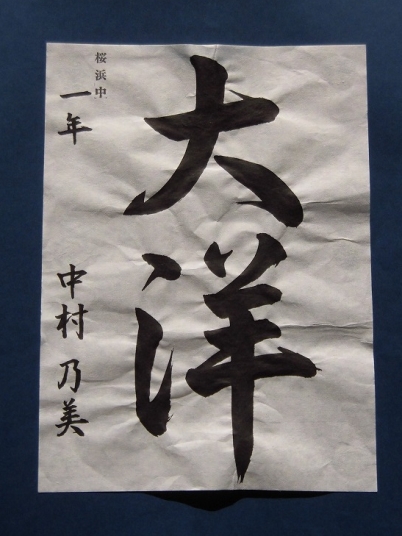 大洋
桜浜中
一年
中村乃美